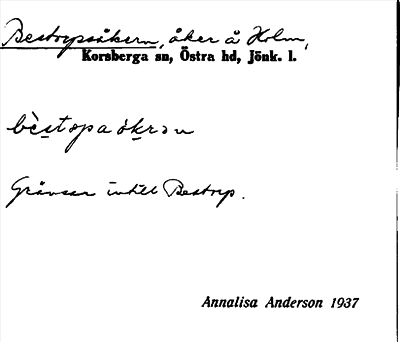 Bestorpsåkern, åker å Holm,
Korsberga sn, Östra hd, Jönk. l.
bèstɔpaòkrɔn
Gränsar intill Bestorp.
Annalisa Anderson 1937